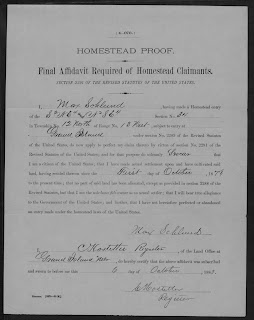 HOMESTEAD PROOF.
Final Affidavit Required of Homestead Claimants.
SECTION 2291 OF THE REVISED STATUTES OF THE UNITED STATES.
I, Max Schlund, having made a Homestead entry
of the section No. 24
in Township No. 12 North of Range No. 12 West, subject to entry at
Grand Island under section No. 2289 of the Revised Statutes
of the United States, do now apply to perfect my claim thereto by virtue of section No. 2291 of the
Revised Statutes of the United States; and for that purpose do solemnly Swear that
I am a citizen of the United States; that I have made actual settlement upon and have cultivated said
land, having resided thereon since the first day of October, 1879
to the present time; that no part of said land has been alienated, except as provided in section 2288 of the
Revised Statutes, but that I am the sole bona fide owner as an actual settler; that I will bear true allegiance
to the Government of the United States; and, further, that I have not heretofore perfected or abandoned
an entry made under the homestead laws of the United States.
Max Schlund
I, C Hostetter, Register, of the Land Office at
Grand Island Neb, do hereby certify that the above affidavit was subscribed
and sworn to before me this 6 day of October, 188
C Hostetter
Register